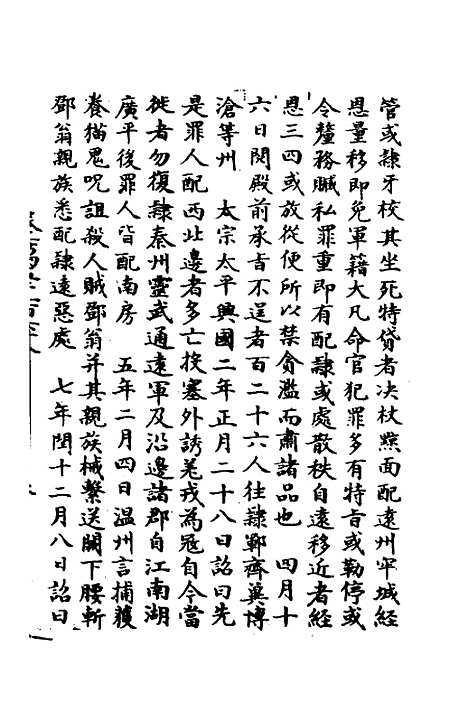 管或隸牙校其坐死特貸者决杖黥面配遠州牢城經
恩量移即免軍籍大凡命官犯罪多有特旨或勒停或
令釐務贓私罪重即有配隸或處散秩自遠移近者經
恩三四或放從便所以禁貪濫而肅諸品也　四月十
六日閱殿前承旨不逞者百二十六人往隸鄆齊冀博
滄等州　太宗太平興國二年正月二十八日詔曰先
是罪人配西北邊者多亡投塞外誘羌戎為冦自今當
徙者勿復隸秦州靈武通遠軍及沿邊諸郡自江南湖
廣平後罪人皆配南方　五年二月四日温州言捕獲
養猫鬼呪詛殺人賊鄧翁并其親族械繫送闕下腰斬
鄧翁親族悉配隸遠惡處　七年閏十二月八日詔曰